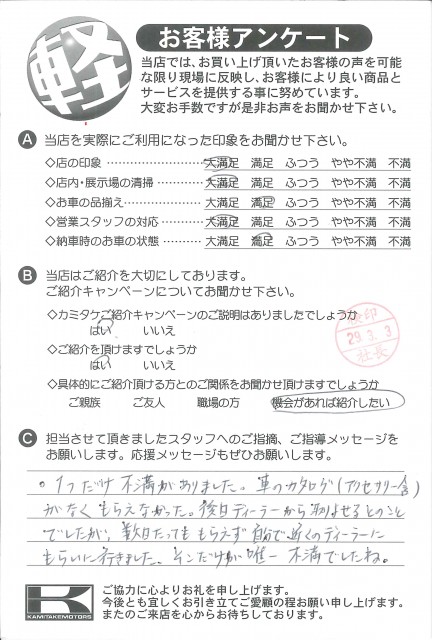 軽
お客様アンケート
当店では、お買い上げ頂いたお客様の声を可能
な限り現場に反映し、お客様により良い商品と
サービスを提供する事に努めています。
大変お手数ですが是非お声をお聞かせ下さい。
A 当店を実際にご利用になった印象をお聞かせ下さい。
◇店の印象 大満足 満足 ふつう やや不満 不満
◇店内・展示場の清掃 大満足 満足 ふつう やや不満 不満
◇お車の品揃え 大満足 満足 ふつう やや不満 不満
◇営業スタッフの対応 大満足 満足 ふつう やや不満 不満
◇納車時のお車の状態 大満足 満足 ふつう やや不満 不満
B 当店はご紹介を大切にしております。
ご紹介キャンペーンについてお聞かせ下さい。
◇カミタケご紹介キャンペーンのご説明はありましたでしょうか
はい いいえ
◇ご紹介を頂けますでしょうか
はい いいえ
検印
29.3.3
社長
◇具体的にご紹介頂ける方とのご関係をお聞かせ頂けますでしょうか
ご親族 ご友人 職場の方 機会があれば紹介したい
C 担当させて頂きましたスタッフへのご指摘、ご指導メッセージを
お願いします。応援メッセージもぜひお願いします。
・1つだけ不満がありました。車のカタログ(アクセサリー含)
がなくもらえなかった。後日ディーラーから取りよせるとのこと
でしたが、数日たってももらえず自分で近くのディーラーに
もらいに行きました。そこだけが唯一不満でしたね。
K
KAMITAKEMOTORS
ご協力に心よりお礼を申し上げます。
今後とも宜しくお引き立てご愛顧の程お願い申し上げます。
またのご来店を心からお待ちしております。